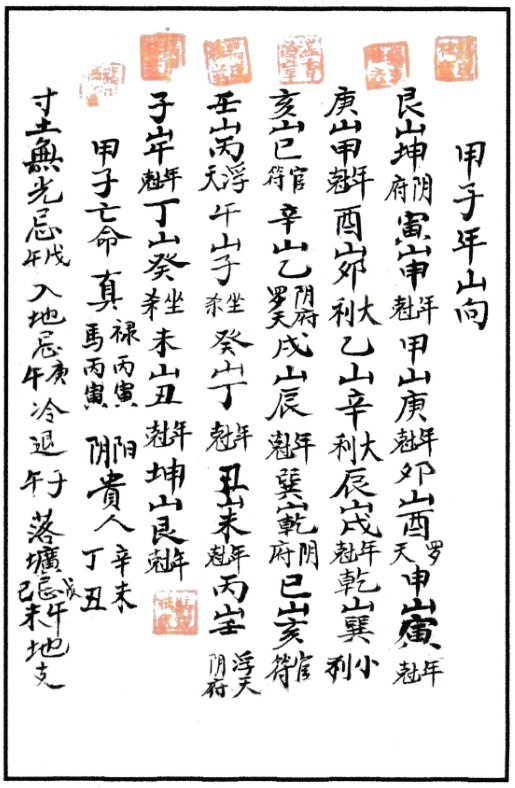 甲子年山向
艮山坤阴府寅山申年尅甲山庚年尅卯山酉罗天申山寅年尅
庚山甲年尅酉山卯大利乙山辛大利辰山戌年尅乾山巽小利
亥山巳官符辛山乙阴府罗天戌山辰年尅巽山乾阴府巳山亥官符
壬山丙浮天午山子坐杀癸山丁年尅丑山未年尅丙山壬浮天阴府
子山午年尅丁山癸坐杀未山丑年尅坤山艮年尅
甲子亡命真禄丙寅馬丙寅阳阴貴人辛未丁丑
寸土無光忌戊午入地忌庚午冷退午落壙忌午己未地支